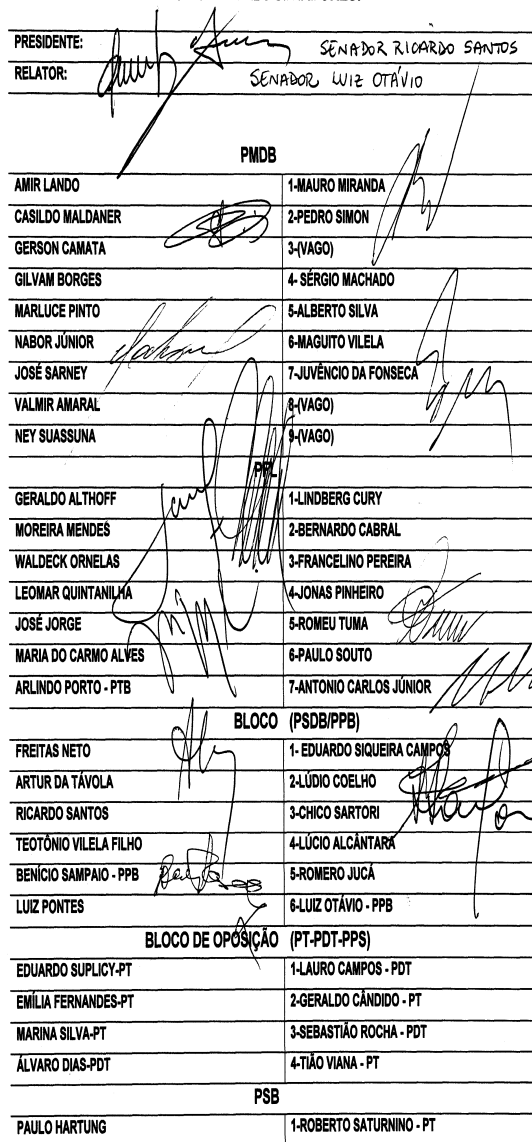 PRESIDENTE: SENADOR RICARDO SANTOS
RELATOR: SENADOR LUIZ OTÁVIO
PMDB
AMIR LANDO 1-MAURO MIRANDA
CASILDO MALDANER 2-PEDRO SIMON
GERSON CAMATA 3-(VAGO)
GILVAM BORGES 4- SÉRGIO MACHADO
MARLUCE PINTO 5-ALBERTO SILVA
NABOR JÚNIOR 6-MAGUITO VILELA
JOSÉ SARNEY 7-JUVÊNCIO DA FONSECA
VALMIR AMARAL 8-(VAGO)
NEY SUASSUNA 9-(VAGO)
PFL
GERALDO ALTHOFF 1-LINDBERG CURY
MOREIRA MENDES 2-BERNARDO CABRAL
WALDECK ORNELAS 3-FRANCELINO PEREIRA
LEOMAR QUINTANILHA 4-JONAS PINHEIRO
JOSÉ JORGE 5-ROMEU TUMA
MARIA DO CARMO ALVES 6-PAULO SOUTO
ARLINDO PORTO - PTB 7-ANTONIO CARLOS JÚNIOR
BLOCO (PSDB/PPB)
FREITAS NETO 1- EDUARDO SIQUEIRA CAMPOS
ARTUR DA TÁVOLA 2-LÚDIO COELHO
RICARDO SANTOS 3-CHICO SARTORI
TEOTÔNIO VILELA FILHO 4-LÚCIO ALCÂNTARA
BENÍCIO SAMPAIO - PPB 5-ROMERO JUCÁ
LUIZ PONTES 6-LUIZ OTÁVIO - PPB
BLOCO DE OPOSIÇÃO (PT-PDT-PPS)
EDUARDO SUPLICY-PT 1-LAURO CAMPOS - PDT
EMÍLIA FERNANDES-PT 2-GERALDO CÂNDIDO - PT
MARINA SILVA-PT 3-SEBASTIÃO ROCHA - PDT
ÁLVARO DIAS-PDT 4-TIÃO VIANA - PT
PSB
PAULO HARTUNG 1-ROBERTO SATURNINO - PT